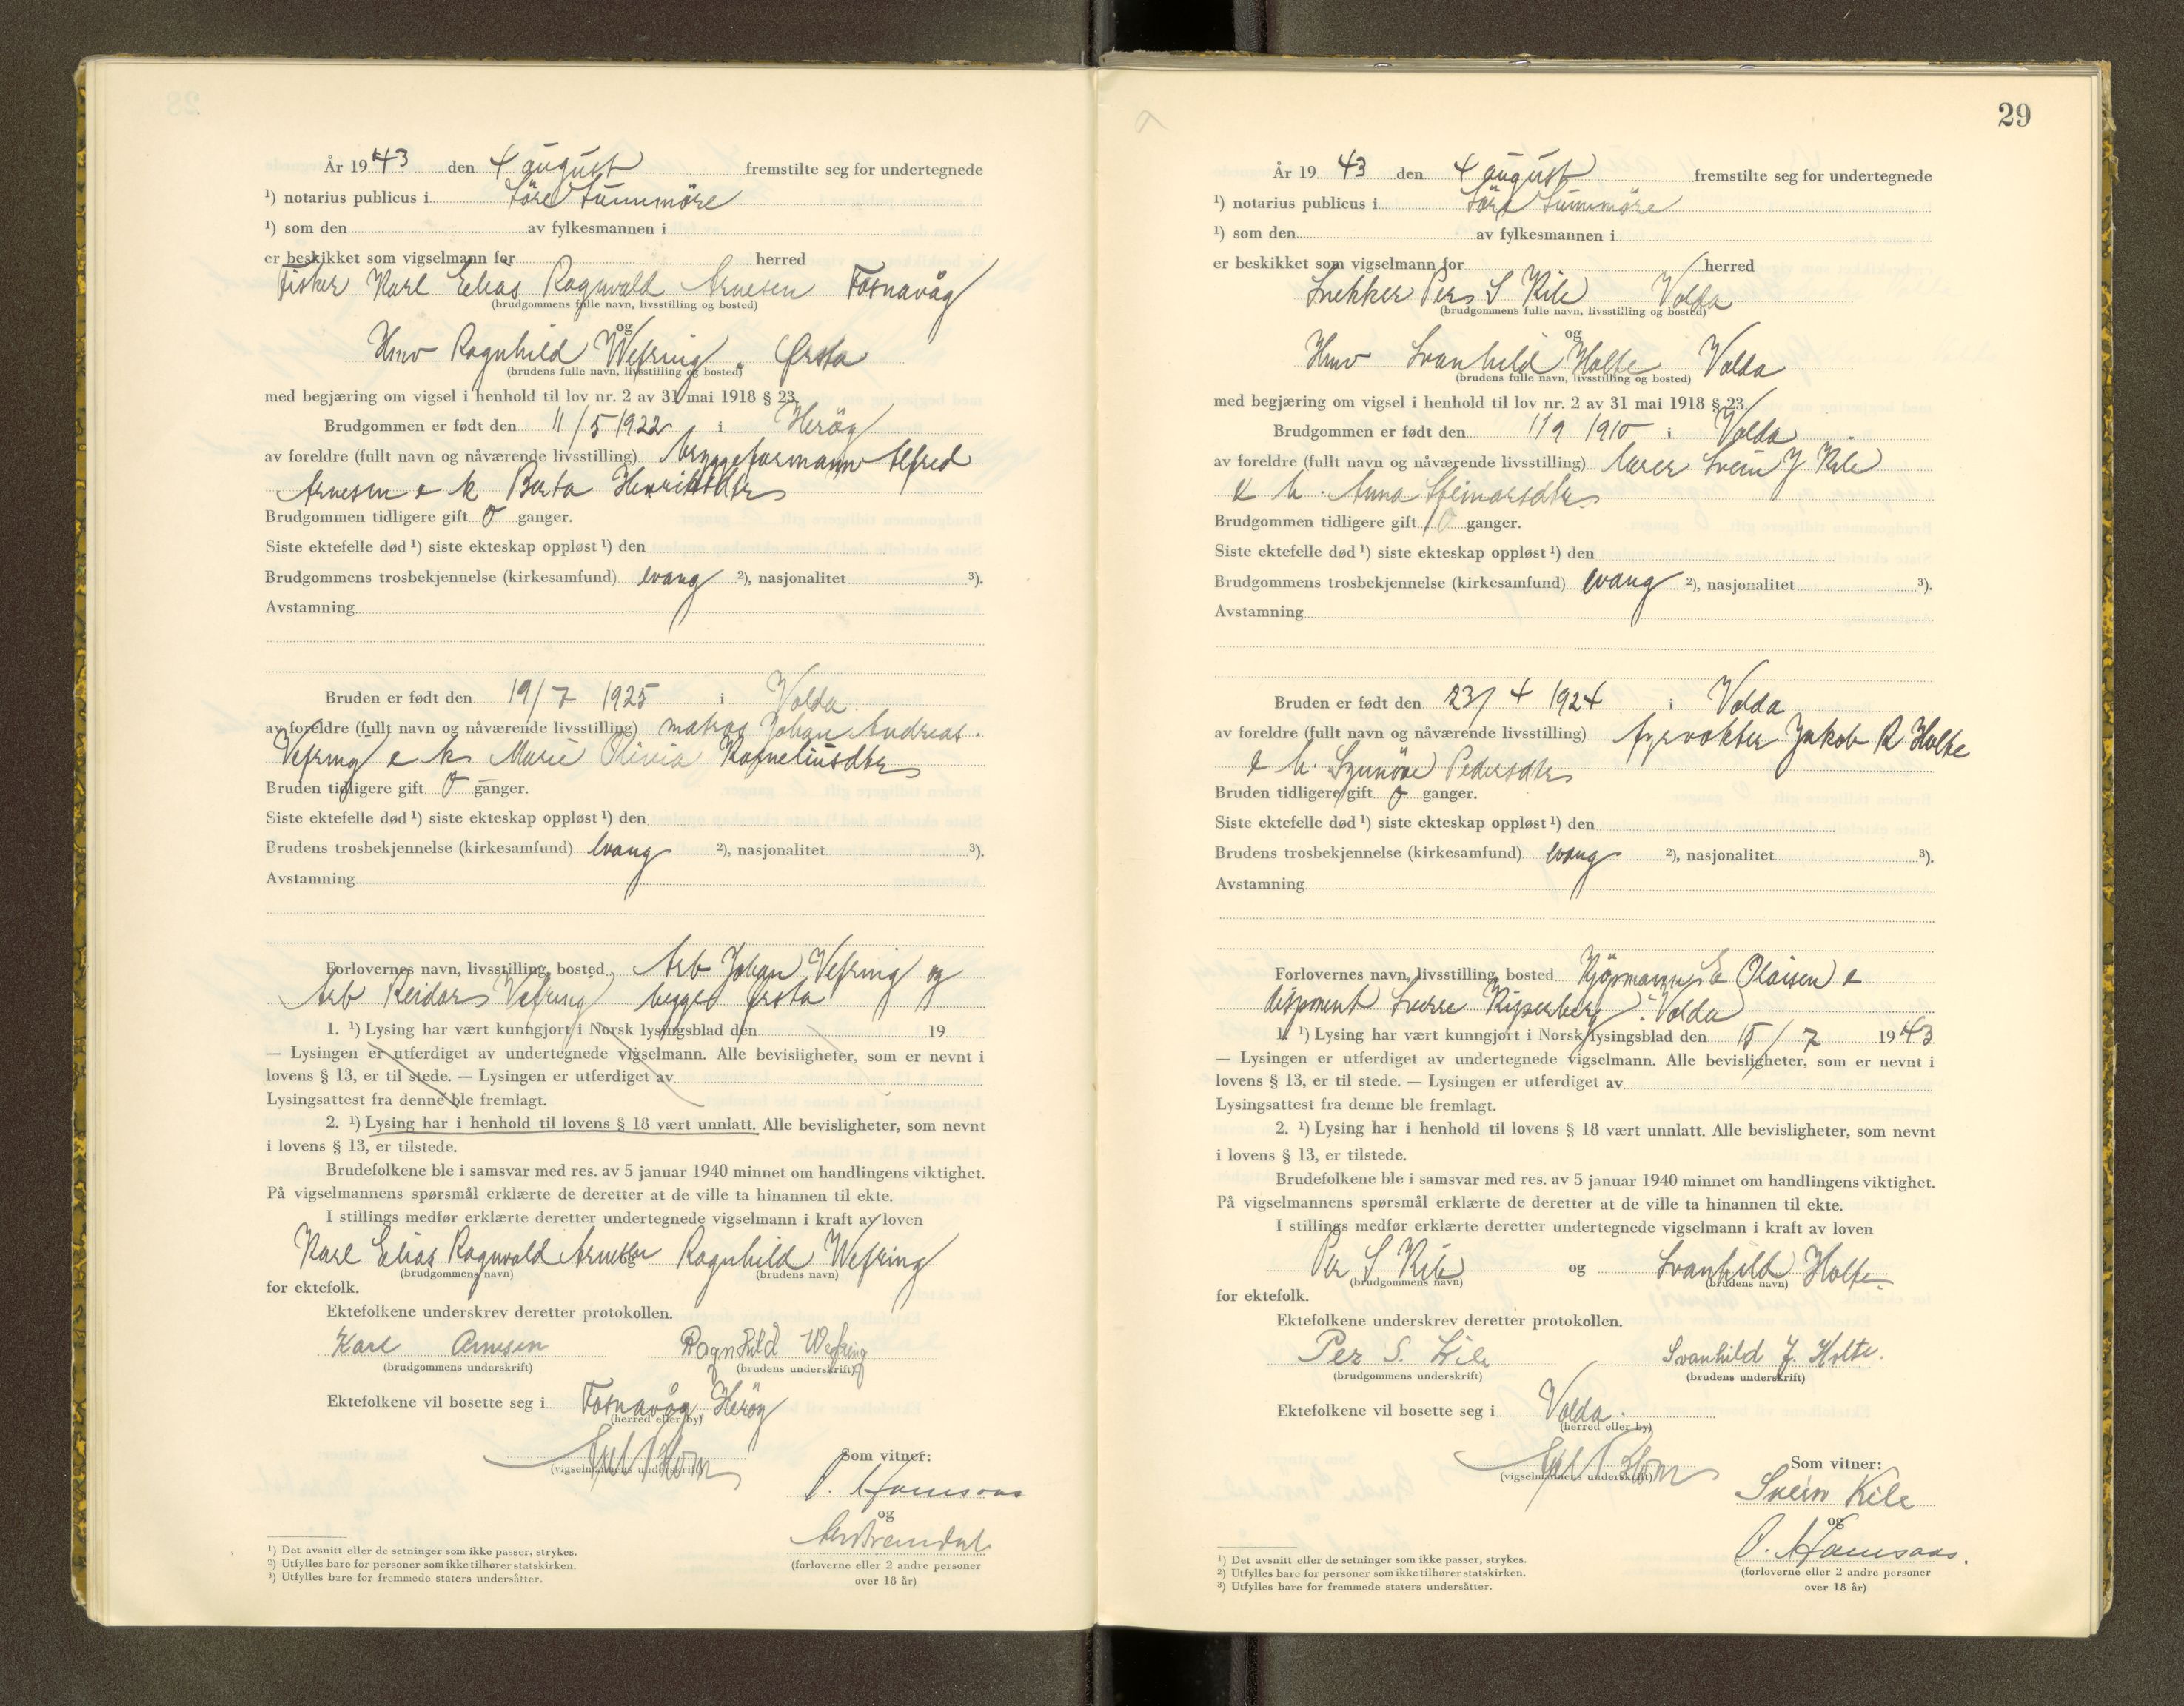 År 1943 den 4 august fremstilte seg for undertegnede
¹) notarius publicus i Söre Sunnmöre
¹) som den av fylkesmannen i
er beskikket som vigselmann for herred
Fisker Karl Elias Ragnvald Arnesen Fosnavåg
(brudgommens fulle navn, livsstilling og bosted)
og
Hmv Ragnhild Wefring, Ørsta
(brudens fulle navn, livsstilling og bosted)
med begjæring om vigsel i henhold til lov nr. 2 av 31 mai 1918 § 23.
Brudgommen er født den 11/5 1922 i Heröy
av foreldre (fullt navn og nåværende livsstilling) bryggeformann Alfred
Arnesen e h Berta Henriksdtr
Brudgommen tidligere gift 0 ganger.
Siste ektefelle død ¹) siste ekteskap oppløst ¹) den
Brudgommens trosbekjennelse (kirkesamfund) evang ²), nasjonalitet ³).
Avstamning
Bruden er født den 19/7 1925 i Volda
av foreldre (fullt navn og nåværende livsstilling) matros Johan Andreas
Vefring e h Marie Olivia Korneliusdtr
Bruden tidligere gift 0 ganger.
Siste ektefelle død ¹) siste ekteskap oppløst ¹) den
Brudens trosbekjennelse (kirkesamfund) evang ²), nasjonalitet ³).
Avstamning
Forlovernes navn, livsstilling, bosted Arb Johan Vefring og
Arb Reidar Vefring begge Ørsta
1. ¹) Lysing har vært kunngjort i Norsk lysingsblad den 19
— Lysingen er utferdiget av undertegnede vigselmann. Alle bevisligheter, som er nevnt i
lovens § 13, er til stede. — Lysingen er utferdiget av
Lysingsattest fra denne ble fremlagt.
2. ¹) Lysing har i henhold til lovens § 18 vært unnlatt. Alle bevisligheter, som nevnt
i lovens § 13, er tilstede.
Brudefolkene ble i samsvar med res. av 5 januar 1940 minnet om handlingens viktighet.
På vigselmannens spørsmål erklærte de deretter at de ville ta hinannen til ekte.
I stillings medfør erklærte deretter undertegnede vigselmann i kraft av loven
Karl Elias Ragnvald Arnesen og Ragnhild Wefring
(brudgommens navn) (brudens navn)
for ektefolk.
Ektefolkene underskrev deretter protokollen.
Karl Arnesen Ragnhild Wefring
(brudgommens underskrift) (brudens underskrift)
Ektefolkene vil bosette seg i Fosnavåg Heröy
(herred eller by)
Som vitner:
(vigselmannens underskrift)
og
(forloverne eller 2 andre personer
over 18 år)
¹) Det avsnitt eller de setninger som ikke passer, strykes.
²) Utfylles bare for personer som ikke tilhører statskirken.
³) Utfylles bare for fremmede staters undersåtter.
29
År 1943 den 4 august fremstilte seg for undertegnede
¹) notarius publicus i Söre Sunnmöre
¹) som den av fylkesmannen i
er beskikket som vigselmann for herred
Snekker Per S Kile Volda
(brudgommens fulle navn, livsstilling og bosted)
og
Hmv Svanhild Holte Volda
(brudens fulle navn, livsstilling og bosted)
med begjæring om vigsel i henhold til lov nr. 2 av 31 mai 1918 § 23.
Brudgommen er født den 11 9 1910 i Volda
av foreldre (fullt navn og nåværende livsstilling) lærer Svein J Kile
e h. Anna Steinarsdtr
Brudgommen tidligere gift 0 ganger.
Siste ektefelle død ¹) siste ekteskap oppløst ¹) den
Brudgommens trosbekjennelse (kirkesamfund) evang ²), nasjonalitet ³).
Avstamning
Bruden er født den 23/4 1924 i Volda
av foreldre (fullt navn og nåværende livsstilling) fyrvokter Jakob R Holte
e h. Synnöve Pedersdtr
Bruden tidligere gift 0 ganger.
Siste ektefelle død ¹) siste ekteskap oppløst ¹) den
Brudens trosbekjennelse (kirkesamfund) evang ²), nasjonalitet ³).
Avstamning
Forlovernes navn, livsstilling, bosted Kjöpmann Olaisen e
disponent Sverre i Volda
1. ¹) Lysing har vært kunngjort i Norsk lysingsblad den 15/7 1943
— Lysingen er utferdiget av undertegnede vigselmann. Alle bevisligheter, som er nevnt i
lovens § 13, er til stede. — Lysingen er utferdiget av
Lysingsattest fra denne ble fremlagt.
2. ¹) Lysing har i henhold til lovens § 18 vært unnlatt. Alle bevisligheter, som nevnt
i lovens § 13, er tilstede.
Brudefolkene ble i samsvar med res. av 5 januar 1940 minnet om handlingens viktighet.
På vigselmannens spørsmål erklærte de deretter at de ville ta hinannen til ekte.
I stillings medfør erklærte deretter undertegnede vigselmann i kraft av loven
Per S Kile og Svanhild Holte
(brudgommens navn) (brudens navn)
for ektefolk.
Ektefolkene underskrev deretter protokollen.
Per S. Kile Svanhild J. Holte.
(brudgommens underskrift) (brudens underskrift)
Ektefolkene vil bosette seg i Volda.
(herred eller by)
Som vitner:
(vigselmannens underskrift)
Svein Kile
og
(forloverne eller 2 andre personer
over 18 år)
¹) Det avsnitt eller de setninger som ikke passer, strykes.
²) Utfylles bare for personer som ikke tilhører statskirken.
³) Utfylles bare for fremmede staters undersåtter.